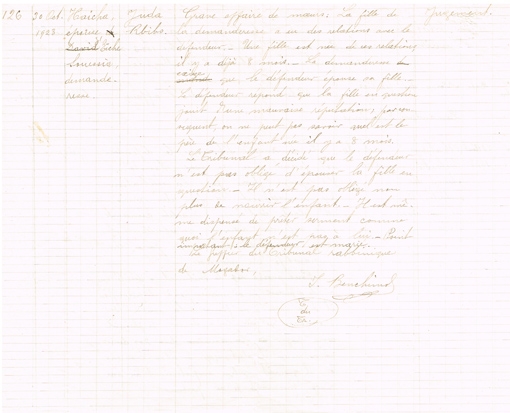 126 30 Oct. 1923.
épouse David
demande-
resse
Juda
Grave affaire de mœurs. La fille de
la demanderesse a eu des relations avec le
défendeur. Une fille est née de ces relations
il y a déjà 8 mois. La demanderesse
exige que le défendeur épouse sa fille.
Le défendeur répond que la fille en question
jouit d'une mauvaise réputation, par con-
séquent, on ne peut pas savoir quel est le
père de l'enfant né il y a 8 mois.
Le Tribunal a décidé que le défendeur
n'est pas obligé d'épouser la fille en
question. Il n'est pas obligé non
plus de nourrir l'enfant. Il est mê-
me dispensé de prêter serment comme
quoi l'enfant n'est pas à lui. Point
important: le défendeur est marié.
Le greffier du Tribunal rabbinique
de Mogador,
Jugement.